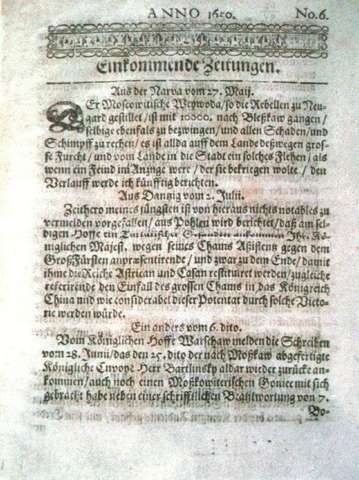 ANNO 1650. No. 6.
Einkommende Zeitungen.
Aus der Narva vom 27. Maij.
DEr Moscowitische Weywoda / so die Rebellen zu Neu-
gard gestillet / ist mit 10000. nach Pleßkaw gangen /
selbige ebenfals zu bezwingen / und allen Schaden / und
Schimpff zu rechen / es ist allda auff dem Lande deßwegen gros-
se Furcht / und vom Lande in die Stadt ein solches Flehen / als
wenn ein Feind im Anzuge were / der sie bekriegen wolte / den
Verlauff werde ich künfftig berichten.
Aus Danzig vom 2. Julii.
Zeithero meines jüngsten ist von hieraus nichts notables zu
vermelden vorgefallen / aus Pohlen wird berichtet / daß am sel-
bigen Hoffe ein Ihr. Kö-
niglichen Majest. wegen seines Chams Aßistentz gegen dem
GroßFürsten anpræsentirende / und zwar zu dem Ende / damit
ihme die Reiche Astrican und Casan restituiret werden / zugleich
referirende den Einfall des grossen Chams in das Königreich
China und wie considerabel dieser Potentat durch solche Victo-
rie werden würde.
Ein anders vom 6. dito.
Vom Königlichen Hoffe Warschaw melden die Schreiben
vom 28. Junii / das den 25. dito der nach Moßkaw abgefertigte
Königliche Envoye Herr Bartlinsky aldar wieder zurücke an-
kommen / auch noch einen Moßkowiterischen Goniec mit sich
gebracht habe neben einer schrifftlichen Beantwortung von 7.
Bo-